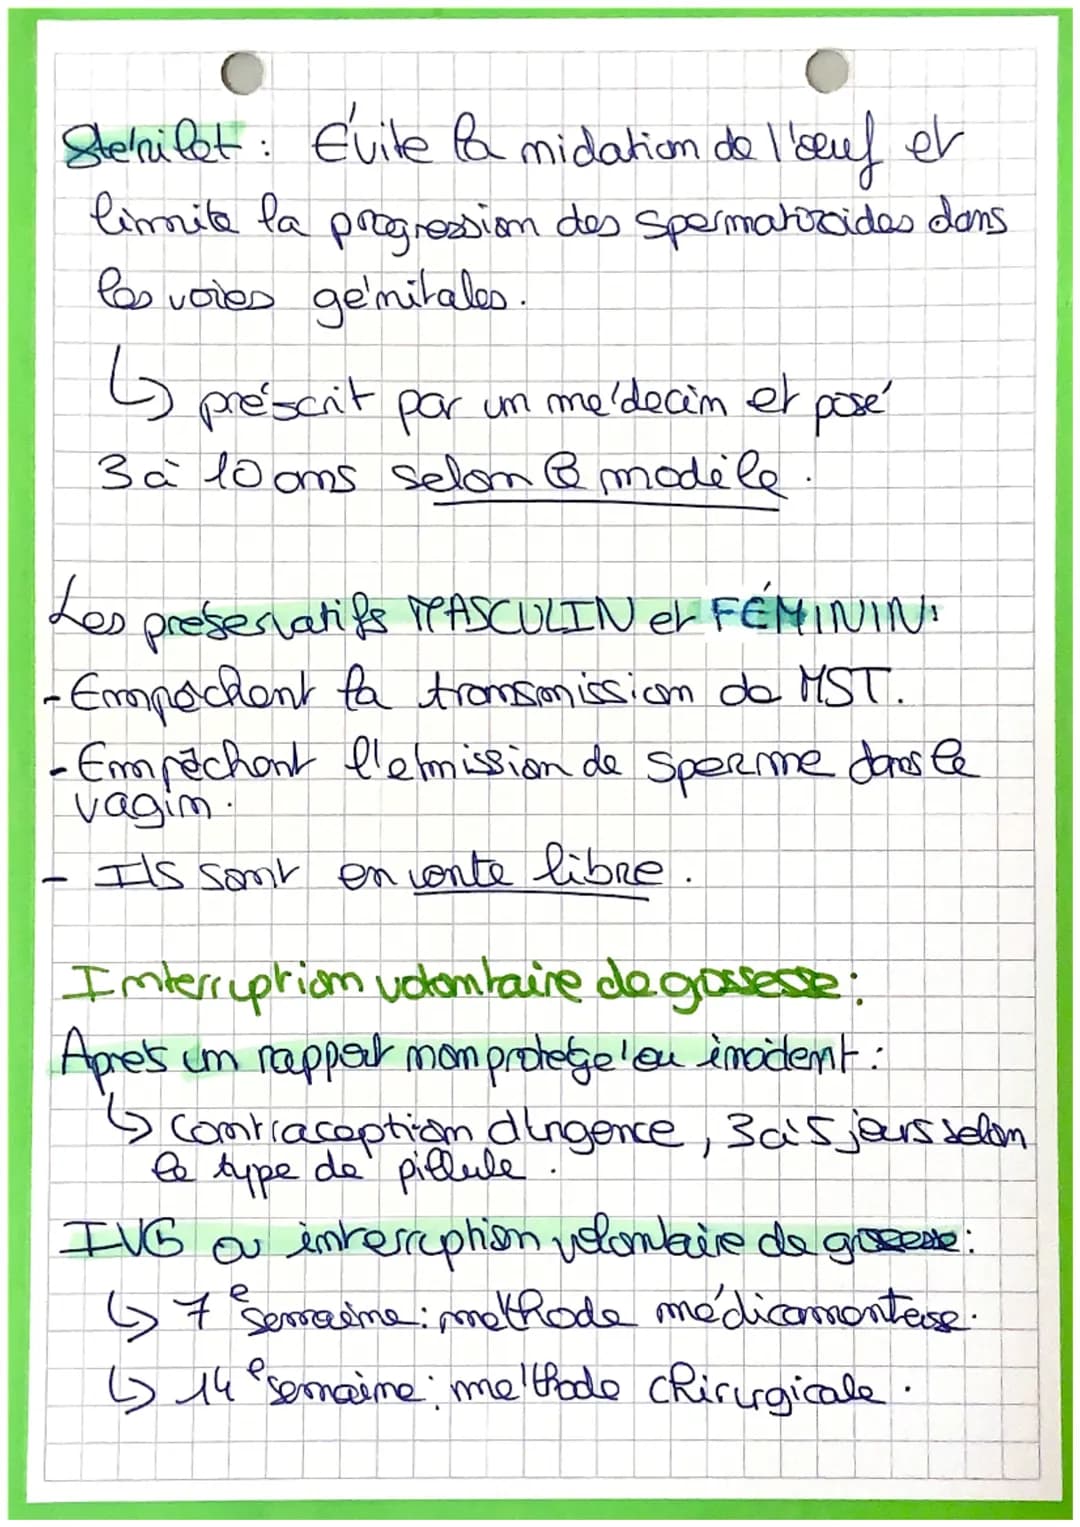 Stérilet : Évite la nidation de l'œuf et
limite la progression des spermatozoïdes dans
les voies génitales.
↳ préscrit par un médecin et posé
3 à 10 ans selon le modèle.
Les préservatifs MASCULIN et FÉMININ:
- Empêchent la transmission de MST.
- Empêchent l'émission de sperme dans le
vagin.
- Ils sont en vente libre.
Interruption volontaire de grossesse :
Après un rapport non protégé ou incident :
↳ Contraception d'urgence, 3 à 5 jours selon
le type de pillule.
IVG ou interruption volontaire de grossesse :
↳ 7e semaine : méthode médicamenteuse.
↳ 14e semaine : méthode chirurgicale.